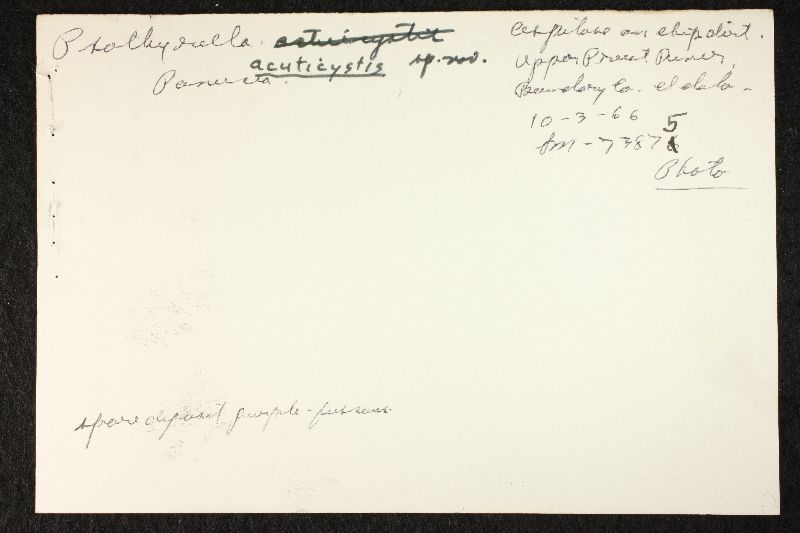 Psathyrella acuticystis sp. nov.
cespitose on chip dirt.
Upper Priest River,
Boundary Co. Idaho.
10-3-66
Sm-73875
Photo
spore deposit purple-fuscous